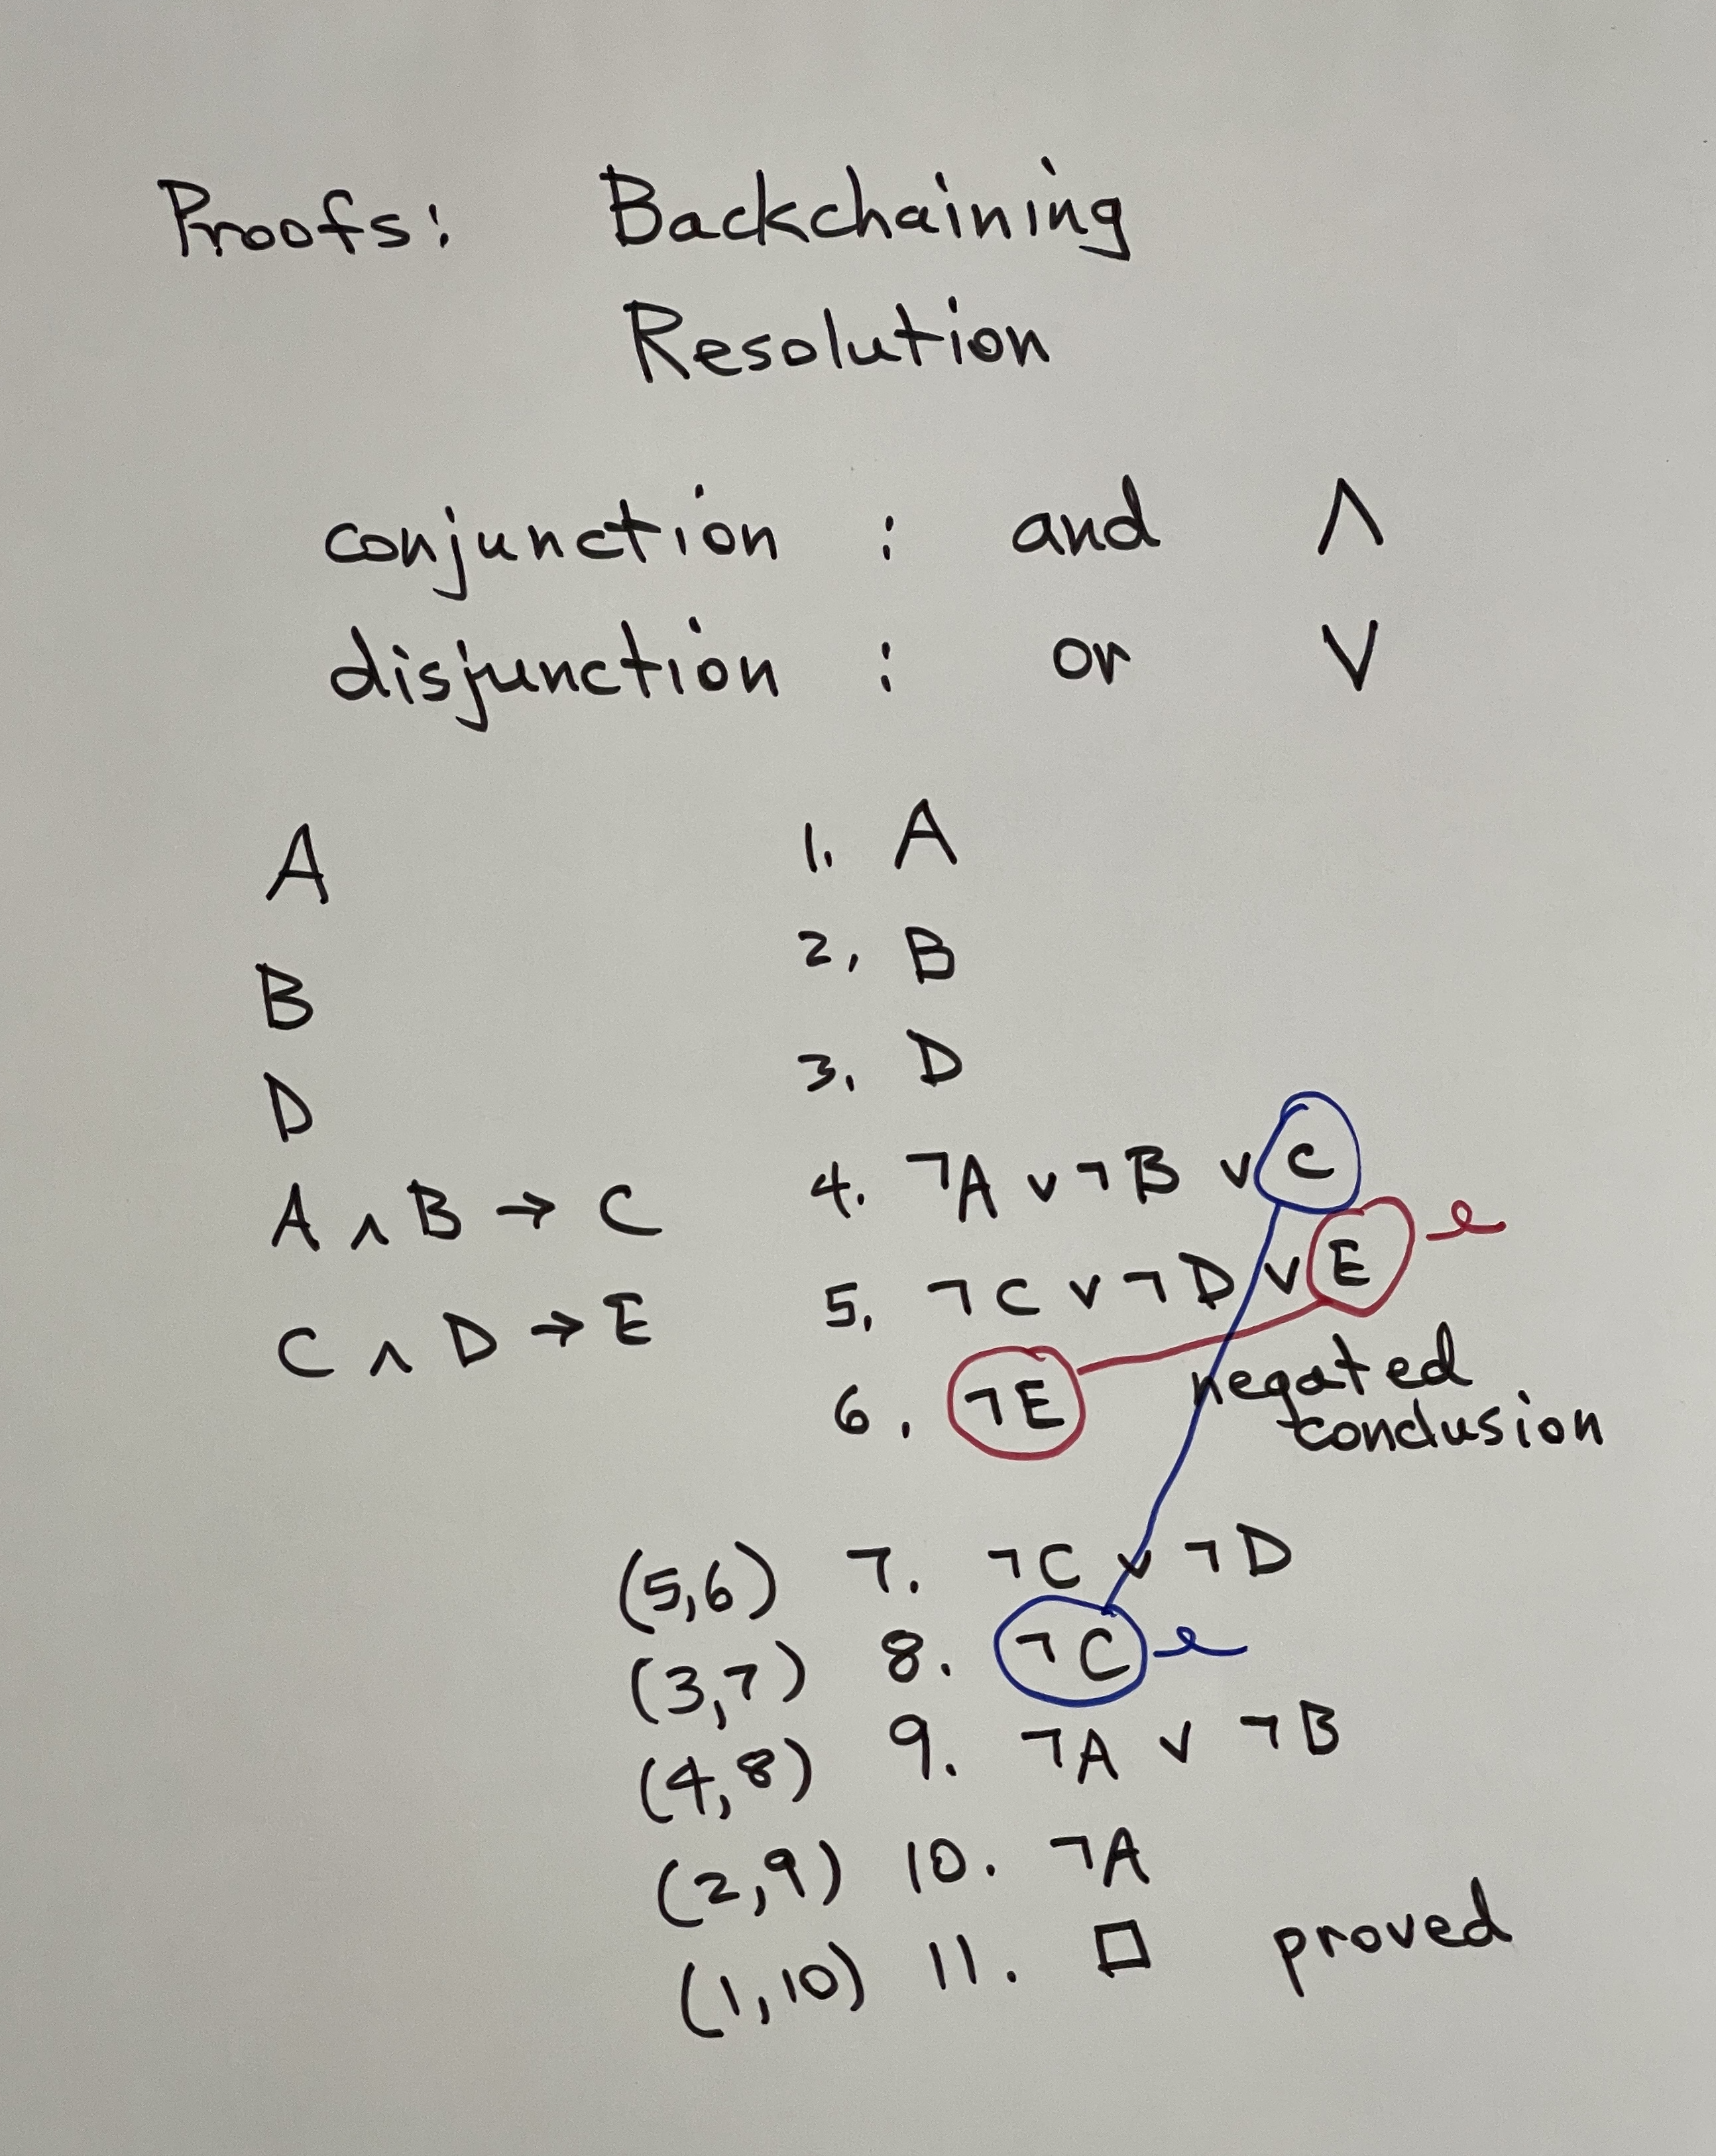 Proofs: Backchaining
Resolution
conjunction : and ∧
disjunction : or ∨
A
B
D
A ∧ B → C
C ∧ D → E
1. A
2. B
3. D
4. ¬A ∨ ¬B ∨ C
5. ¬C ∨ ¬D ∨ E
6. ¬E negated
conclusion
(5,6) 7. ¬C ∨ ¬D
(3,7) 8. ¬C
(4,8) 9. ¬A ∨ ¬B
(2,9) 10. ¬A
(1,10) 11. □ proved